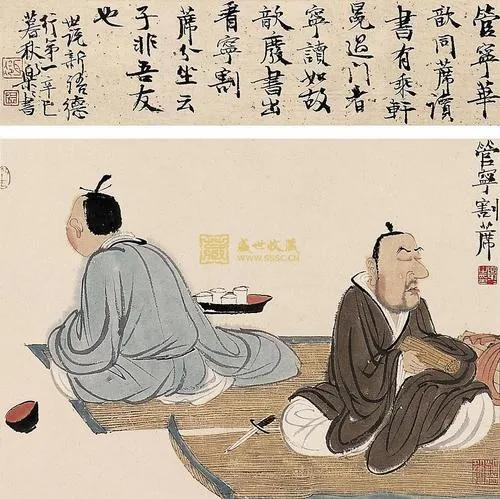 管寧華
歆同蓆讀
書有乘軒
冕過门者
寧讀如故
歆廢書出
看寧割
蓆分坐云
子非吾友
也
世説新語德
行第一辛巳
暮秋樂書
管寧割蓆
藏
盛世收藏
WWW.SSSC.CN